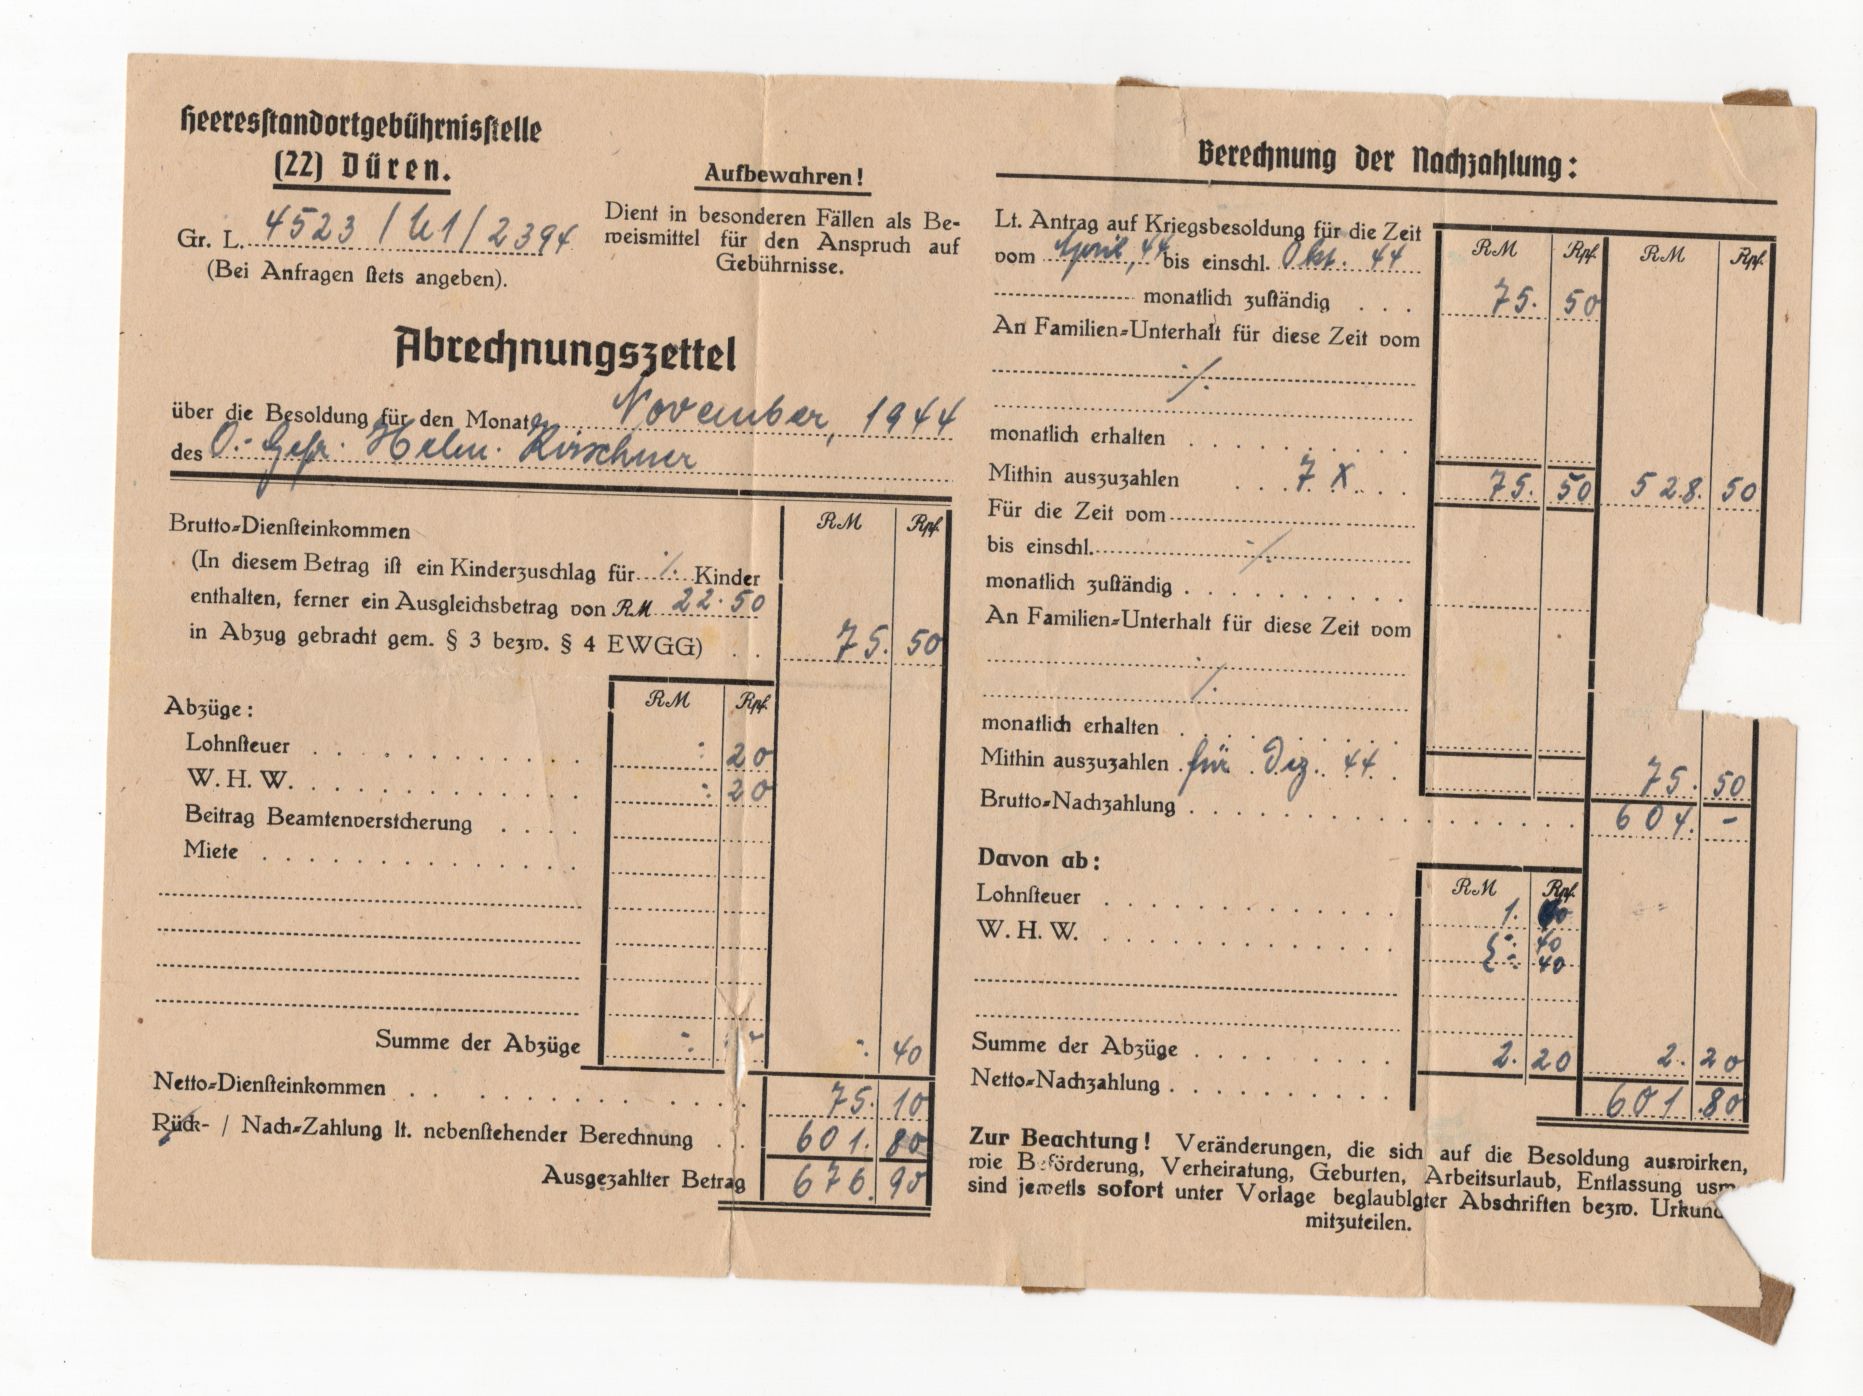 Heeresstandortgebührnisstelle
(22) Düren.
Gr. L. 4523 / U1 / 2394
(Bei Anfragen stets angeben).
Aufbewahren!
Dient in besonderen Fällen als Be-
weismittel für den Anspruch auf
Gebührnisse.
Abrechnungszettel
über die Besoldung für den Monat November, 1944
des O.-Gefr. Helm. Kirschner
RM Rpf.
Brutto-Diensteinkommen
(In diesem Betrag ist ein Kinderzuschlag für ./. Kinder
enthalten, ferner ein Ausgleichsbetrag von RM 22.50
in Abzug gebracht gem. § 3 bezw. § 4 EWGG) . . 75. 50
Abzüge: RM Rpf.
Lohnsteuer -: 20
W. H. W. -: 20
Beitrag Beamtenversicherung
Miete
Summe der Abzüge -. -. -. 40
Netto-Diensteinkommen 75. 10
Rück- / Nach-Zahlung lt. nebenstehender Berechnung . . 601. 80
Ausgezahlter Betrag 676. 90
Berechnung der Nachzahlung:
Lt. Antrag auf Kriegsbesoldung für die Zeit RM Rpf. RM Rpf.
vom April, 44 bis einschl. Okt. 44
monatlich zuständig . . . 75. 50
An Familien-Unterhalt für diese Zeit vom
./.
monatlich erhalten
Mithin auszuzahlen 7 X 75. 50 528. 50
Für die Zeit vom
bis einschl. ./.
monatlich zuständig
An Familien-Unterhalt für diese Zeit vom
./.
monatlich erhalten
Mithin auszuzahlen für Dez. 44 75. 50
Brutto-Nachzahlung 604. -
Davon ab: RM Rpf.
Lohnsteuer 1. 40
W. H. W. { -. 40
{ -. 40
Summe der Abzüge 2. 20 2. 20
Netto-Nachzahlung 601. 80
Zur Beachtung! Veränderungen, die sich auf die Besoldung auswirken,
wie Beförderung, Verheiratung, Geburten, Arbeitsurlaub, Entlassung usw
sind jeweils sofort unter Vorlage beglaubigter Abschriften bezw. Urkund
mitzuteilen.